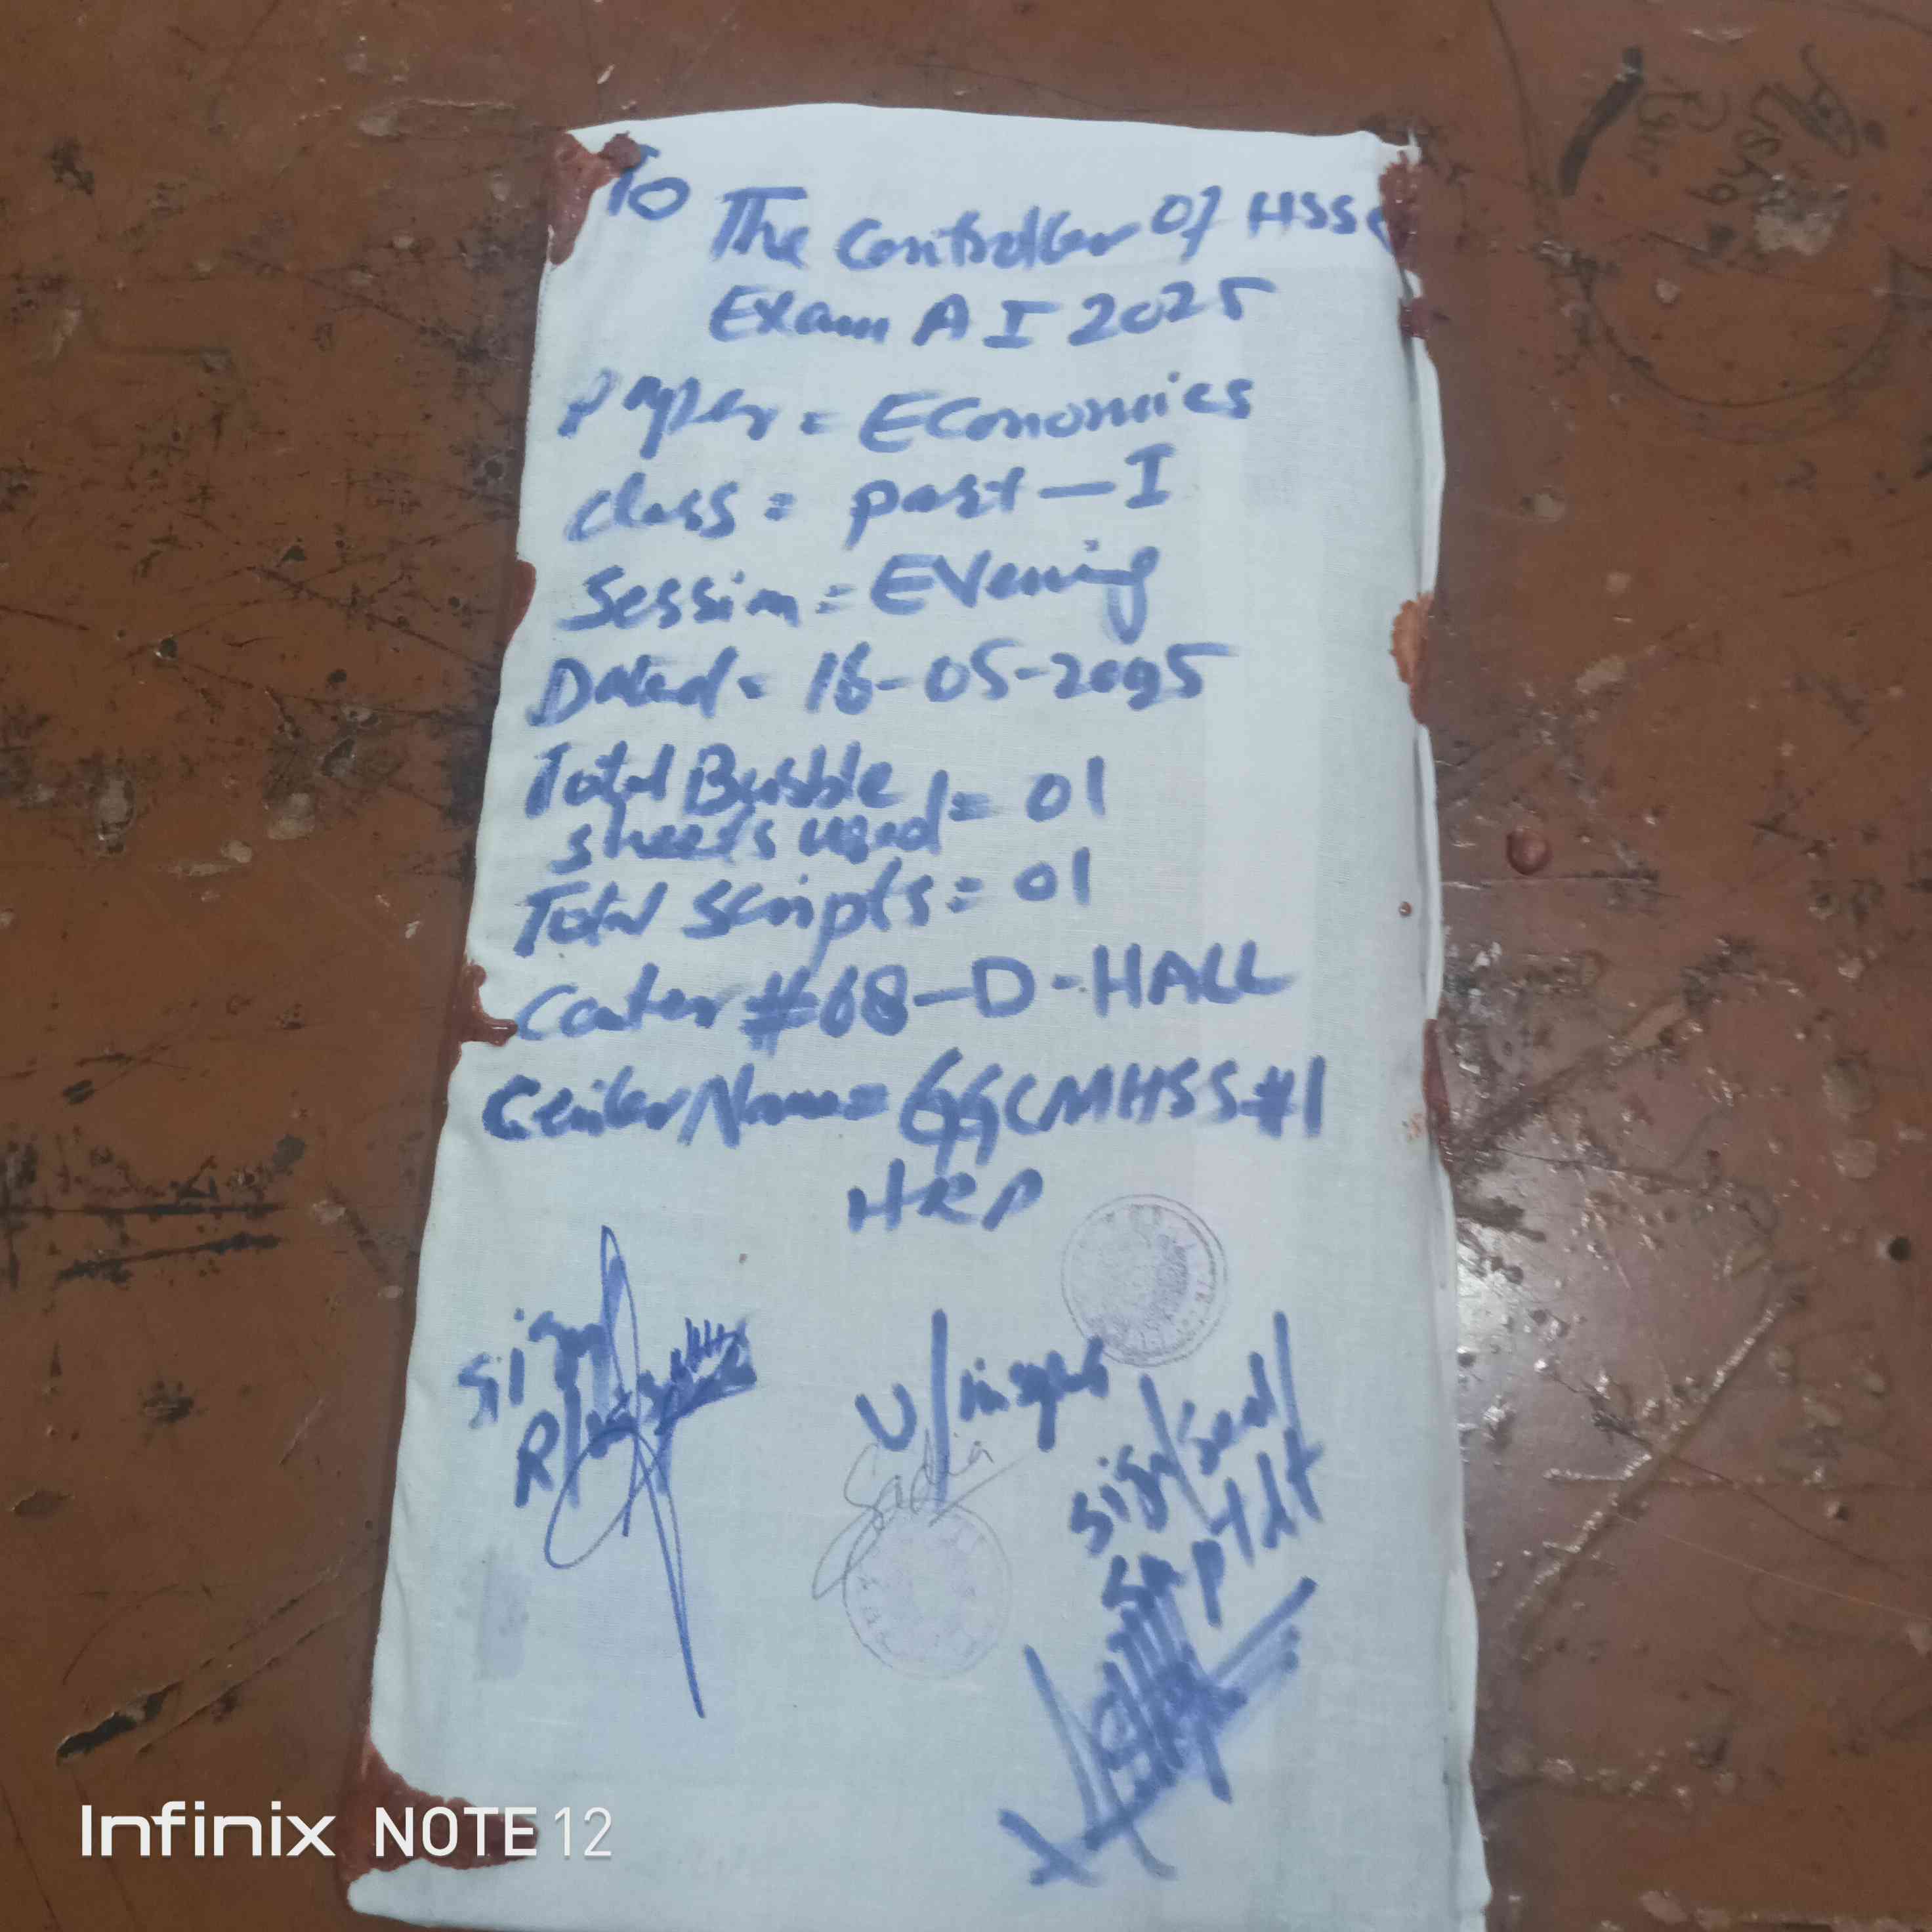 To
The Controller Of HSSC
Exam A I 2025
Paper = Economics
class = part — I
Session = Evening
Dated = 16-05-2025
Total Bubble
sheets used = 01
Total Scripts = 01
Center #68-D-HALL
Center Name = GGCMHSS#1
HRP
Sign
R/
U/insp
Sadia
Sign/Seal/
Suptdt
Infinix NOTE 12